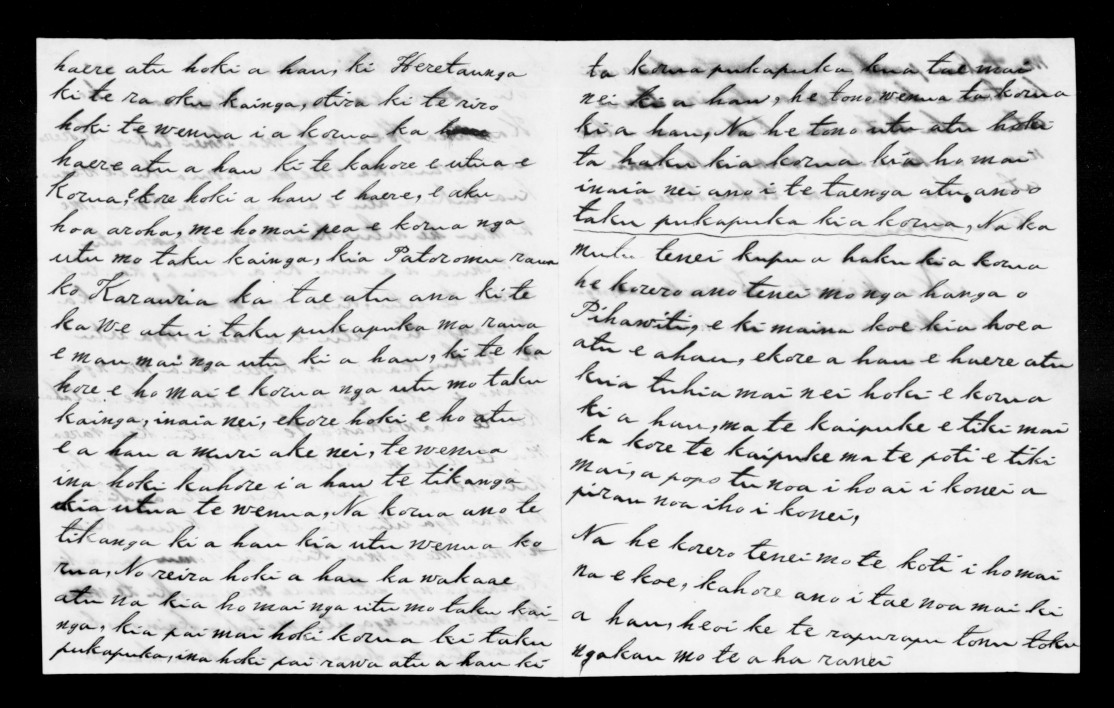 haere atu hoki a hau, ki Heretaunga
ki te ra oku kainga, otira ki te riro
hoki te wenua i a korua ka
haere atu a hau ki te kahore e utua e
korua, ekore hoki a hau e haere, e aku
hoa aroha, me homai pea e korua nga
utu mo taku kainga, kia Patoromu raua
ko Karauria ka tae atu ana ki te
ka we atu i taku pukapuka ma raua
e mau mai nga utu ki a hau, ki te ka
hore e ho mai e korua nga utu mo taku
kainga, inaia nei, ekore hoki e ho atu
e a hau a muri ake nei, te wenua
ina hoki kahore i a hau te tikanga
kia utua te wenua, Na korua ano te
tikanga ki a hau kia utu wenua ko
rua, No reira hoki a hau ka wakaae
atu na kia ho mai nga utu mo taku kai-
nga, kia pai mai hoki korua ki taku
pukapuka, ina hoki pai rawa atu a hau ki
ta korua pukapuka kua tae mai
nei ki a hau, he tono wenua ta korua
ki a hau, Na he tono utu atu hoki
ta haku kia korua kia ho mai
inaia nei ano i te taenga atu ano o
taku pukapuka kia korua, Na ka
mutu tenei kupu a haku kia korua
he korero ano tenei mo nga hanga o
Pihawiti, e ki maina koe kia hoea
atu e ahau, ekore a hau e haere atu
kua tuhia mai nei hoki e korua
ki a hau, ma te kaipuke e tiki mai
ka kore te kaipuke ma te poti e tiki
mai, a popo tu noa i ho ai i konei a
pirau noa iho i konei,
Na he korero tenei mo te koti i ho mai
na e koe, kahore ano i tae noa mai ki
a hau, heoi ke te rapurapu tonu toku
ngakau mo te a ha ranei